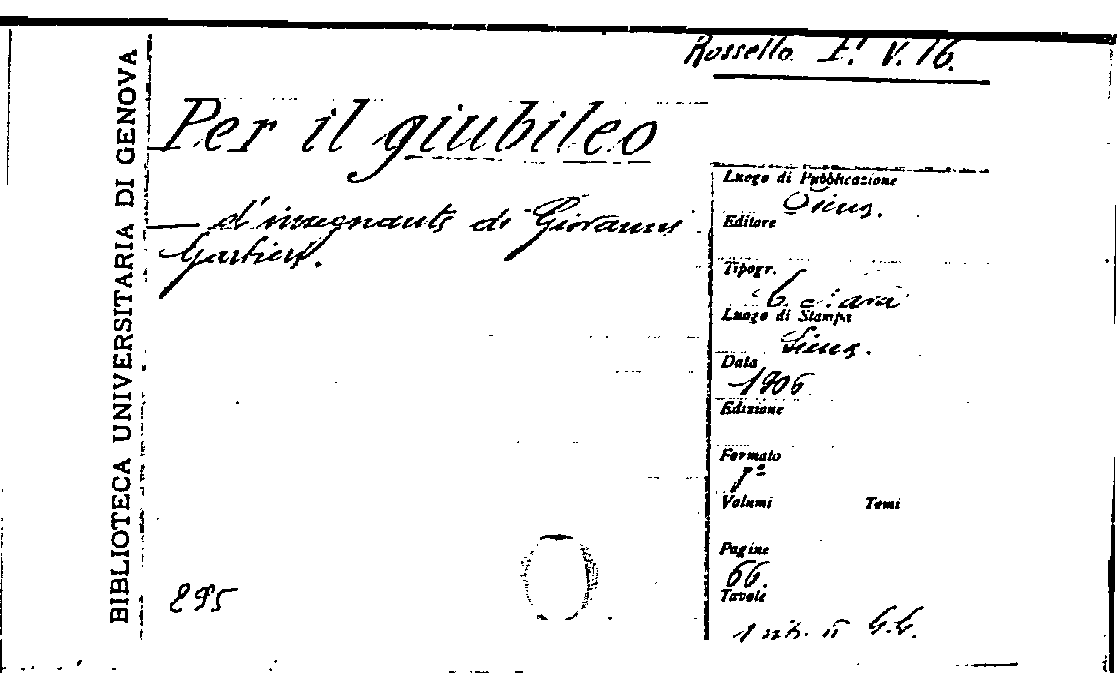 Rossello F. V. 16.
BIBLIOTECA UNIVERSITARIA DI GENOVA
Per il giubileo
d'insegnante di Giovanni
Luogo di Pubblicazione
Siena.
Editore
Tipogr.
Luogo di Stampa
Siena.
Data
1906
Edizione
Formato
8º
Volumi Tomi
Pagine
66.
Tavole
1 G.G.
895